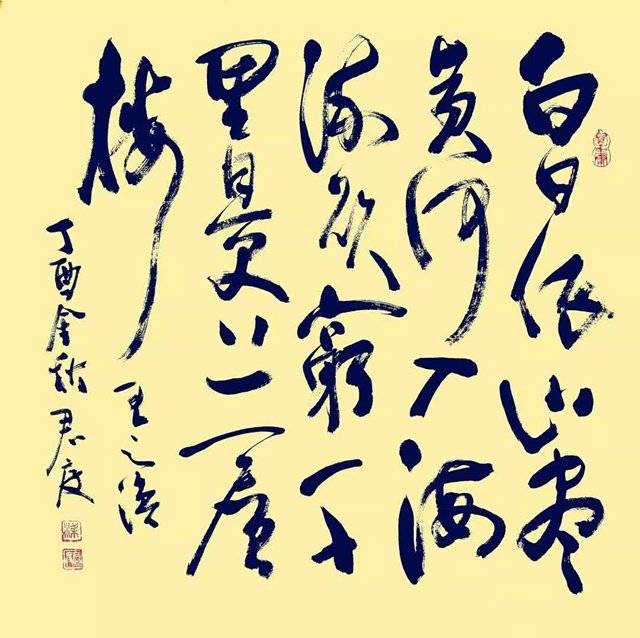 白日依山盡
黄河入海
流欲窮千
里目更上一層
樓
王之涣
丁酉金秋 君度